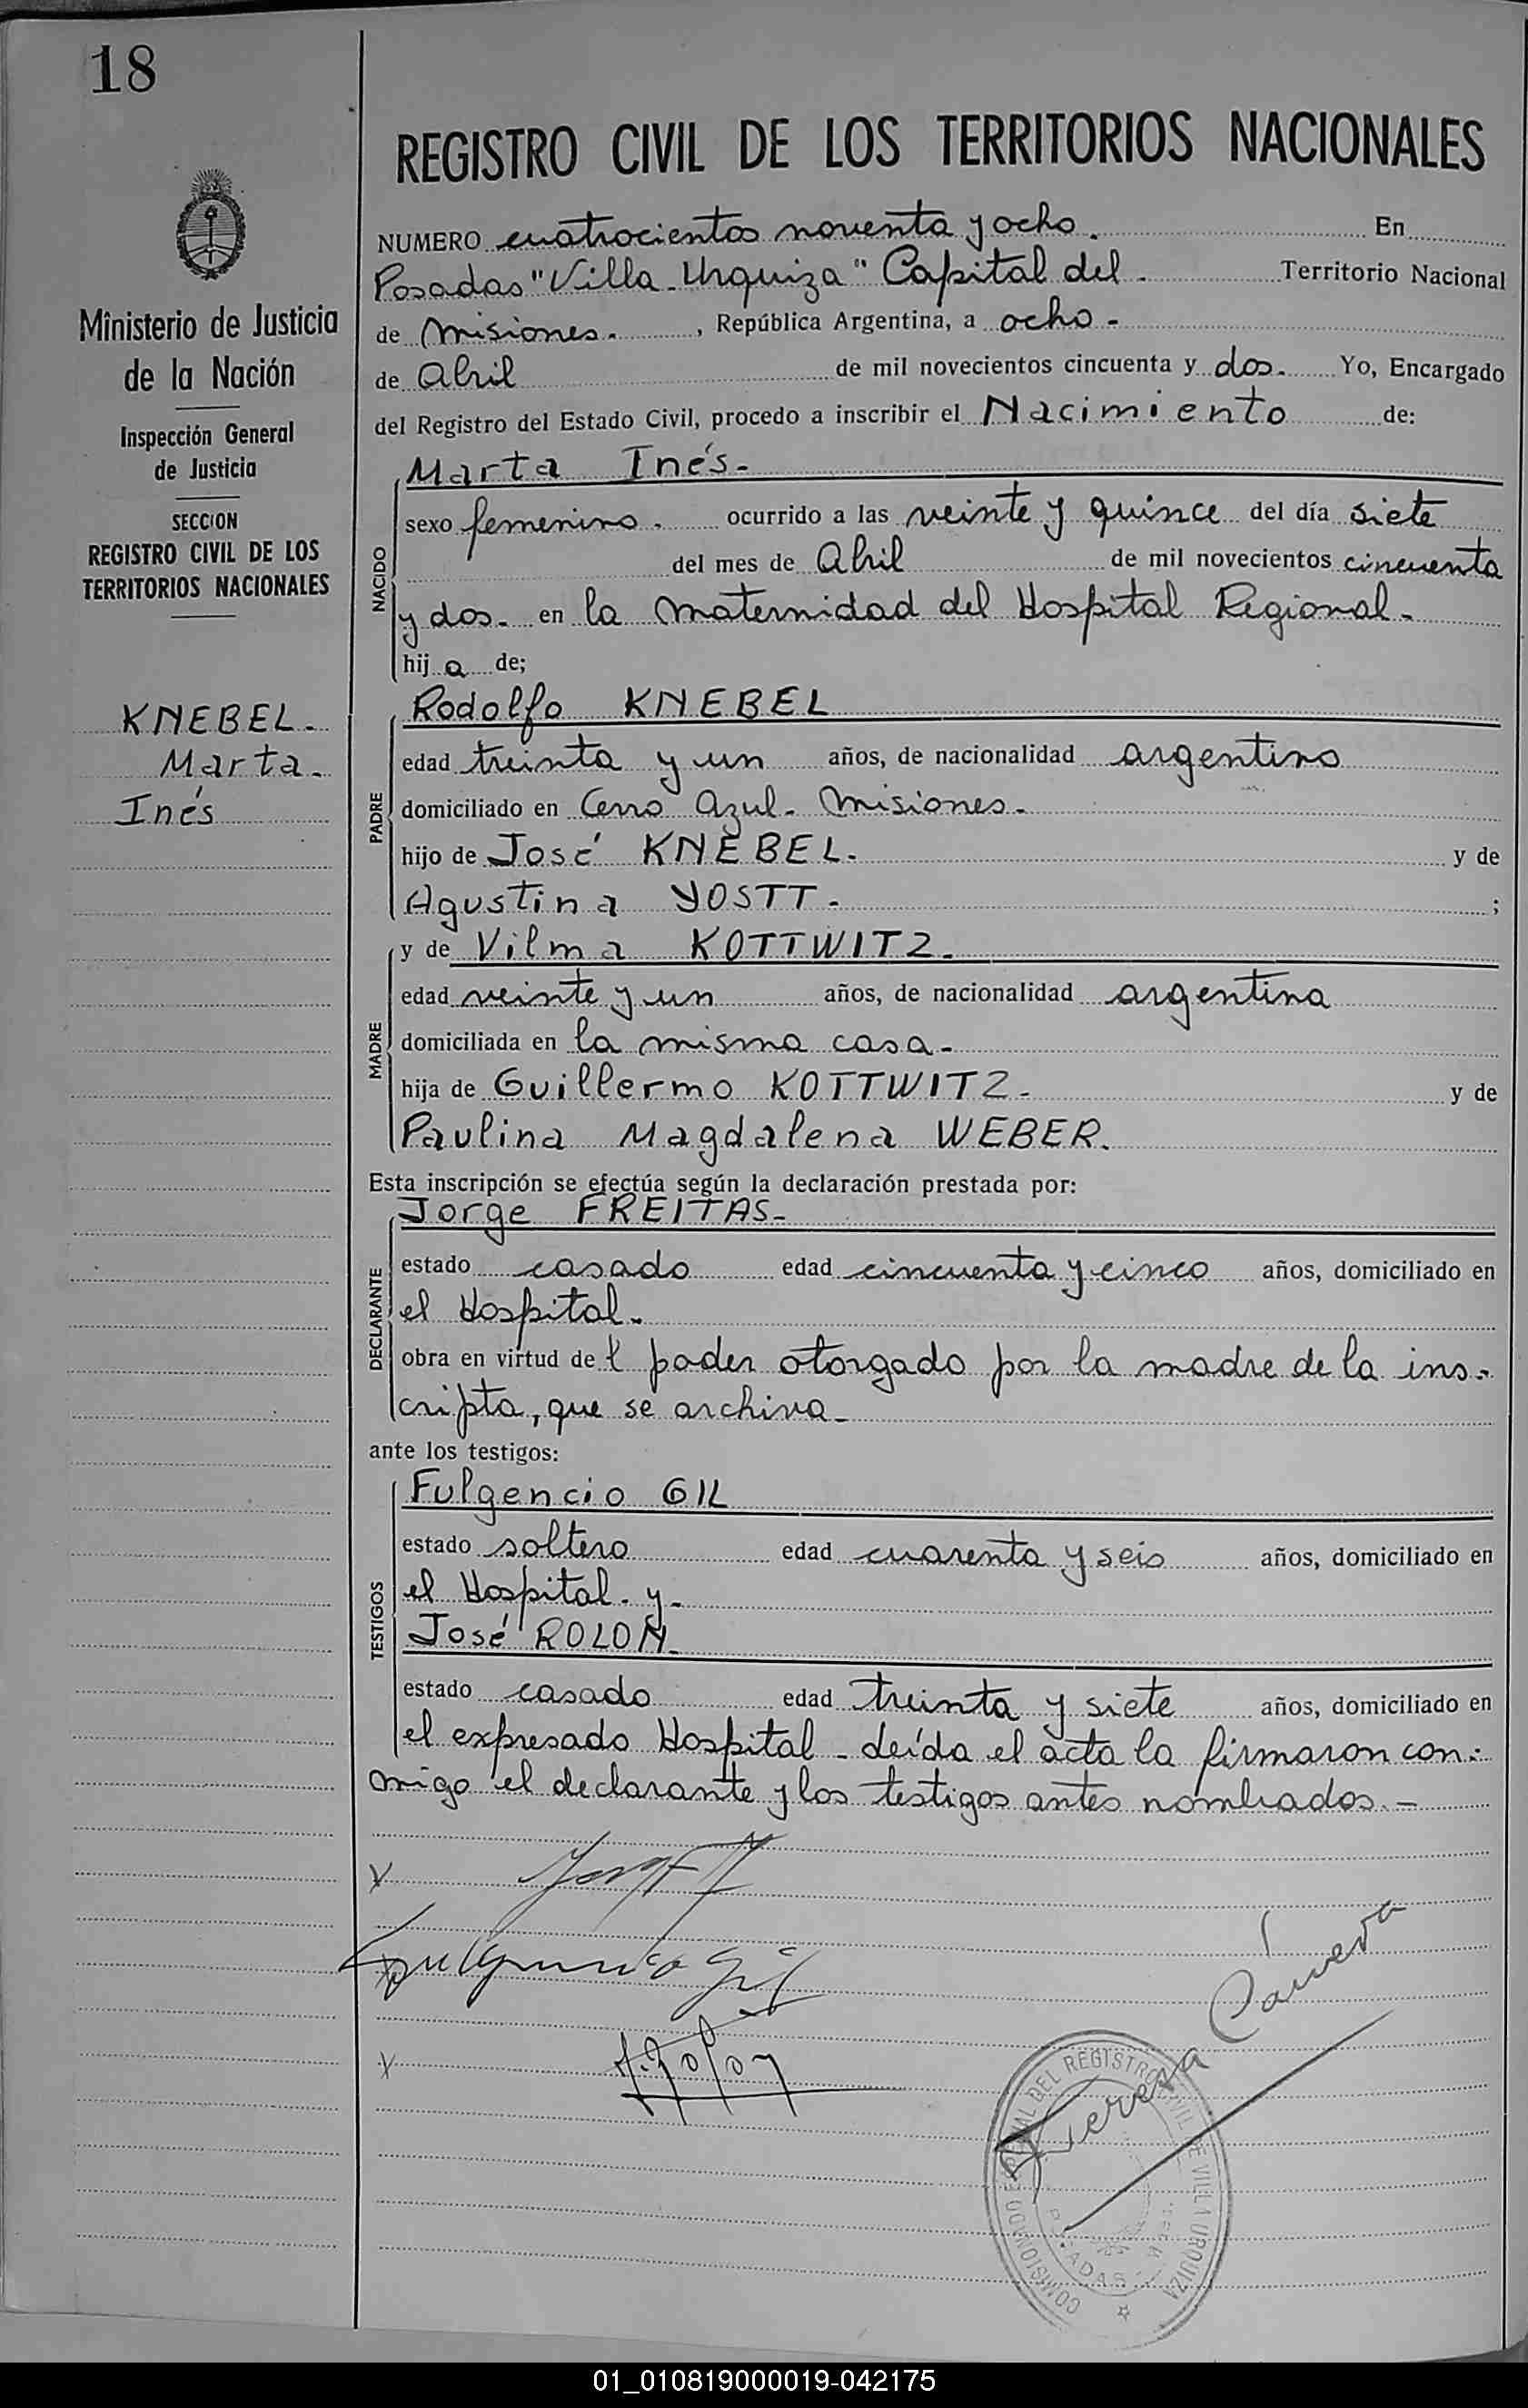 18
REGISTRO CIVIL DE LOS TERRITORIOS NACIONALES
Ministerio de Justicia
de la Nación
Inspección General
de Justicia
SECCION
REGISTRO CIVIL DE LOS
TERRITORIOS NACIONALES
KNEBEL.
Marta.
Inés
NUMERO cuatrocientos noventa y ocho. En
Posadas "Villa Urquiza" Capital del. Territorio Nacional
de Misiones. , República Argentina, a ocho-
de Abril de mil novecientos cincuenta y dos. Yo, Encargado
del Registro del Estado Civil, procedo a inscribir el Nacimiento de:
NACIDO
Marta Inés-
sexo femenino. ocurrido a las veinte y quince del día siete
del mes de Abril de mil novecientos cincuenta
y dos. en la Maternidad del Hospital Regional-
hij a de;
PADRE
Rodolfo KNEBEL
edad treinta y un años, de nacionalidad argentino
domiciliado en Cerro Azul. Misiones-
hijo de José KNEBEL. y de
Agustina YOSTT- ;
MADRE
y de Vilma KOTTWITZ.
edad veinte y un años, de nacionalidad argentina
domiciliada en la misma casa-
hija de Guillermo KOTTWITZ- y de
Paulina Magdalena WEBER.
Esta inscripción se efectúa según la declaración prestada por:
DECLARANTE
Jorge FREITAS-
estado casado edad cincuenta y cinco años, domiciliado en
el Hospital.
obra en virtud de l poder otorgado por la madre de la ins-
cripta, que se archiva-
ante los testigos:
TESTIGOS
Fulgencio GIL
estado soltero edad cuarenta y seis años, domiciliado en
el Hospital. y-
José ROLON-
estado casado edad treinta y siete años, domiciliado en
el expresado Hospital - Leída el acta la firmaron con-
migo el declarante y los testigos antes nombrados.-
X
Fulgencio Gil
X
Teresa Cáneva
COMISIONADO ESPECIAL DEL REGISTRO CIVIL DE VILLA URQUIZA
POSADAS
01_010819000019-042175